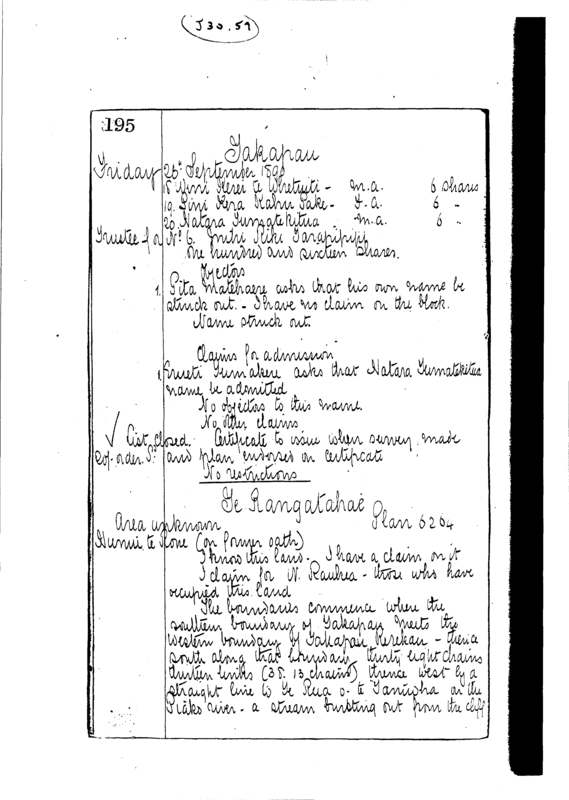 J30.59
195
Takapau
Friday 26th September 1890
18 Wini Kerei te Whetuiti - m.a. 6 shares
19. Pini Kahu Pake - f.a. 6 "
20. Natara Tumatekitua - m.a. 6 "
Trustee for No 6. Kiki Tarapipipi
One hundred and sixteen shares.
Objectors
1. Pita Matehaere asks that his own name be
struck out. - I have no claim on the block.
Name struck out.
Claims for admission
1. Tumakere asks that Natara Tumatekitua
name be admitted
No objectors to this name.
No other claims
✓ List closed. Certificate to issue when survey made
20/- order. and plan endorsed on certificate
No restrictions
Te Rangatahae
Area unknown Plan 6264
te Hone (on former oath)
I know this land. I have a claim on it
I claim for N. Rauhea - those who have
occupied this land
The boundaries commence where the
southern boundary of Takapau meets the
western boundary of Takapau Kerekau - thence
south along that boundary thirty eight chains
thirteen links (38.13 chains) thence west by a
straight line to Te Rua o te on the
Piako river - a stream bursting out from the cliff